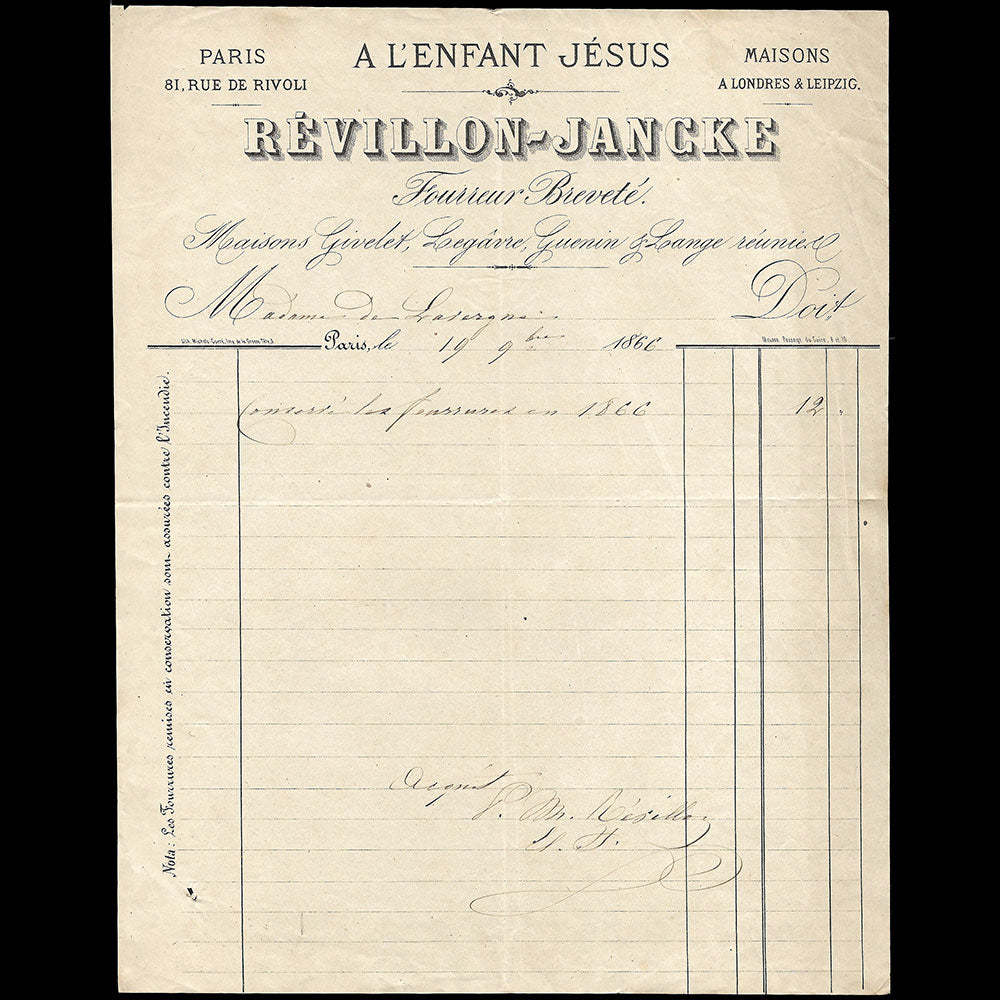 PARIS
81, RUE DE RIVOLI
A L'ENFANT JÉSUS
MAISONS
A LONDRES & LEIPZIG.
RÉVILLON-JANCKE
Fourreur Breveté.
Maisons Givelet, Legâvre, Guenin & Lange réunies
Madame de Doit
Paris, le 19 9bre 1866
Conservé les fourrures en 1866 12 "
Nota: Les Fourrures remises en conservation sont assurées contre l'Incendie.
Acquit
P. M. Révillon